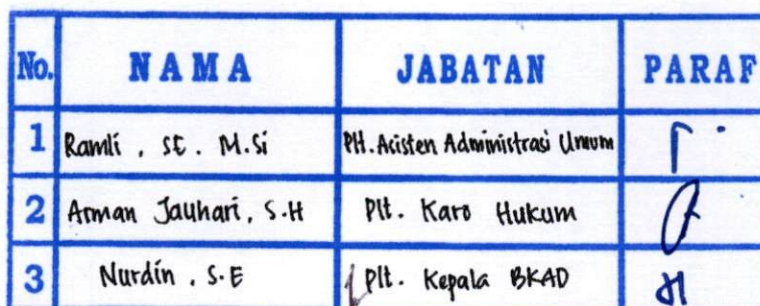 No. NAMA JABATAN PARAF
1 Ramli . SE . M.Si PH. Asisten Administrasi Umum
2 Arman Jauhari, S.H Plt. Karo Hukum
3 Nurdin . S.E Plt. Kepala BKAD